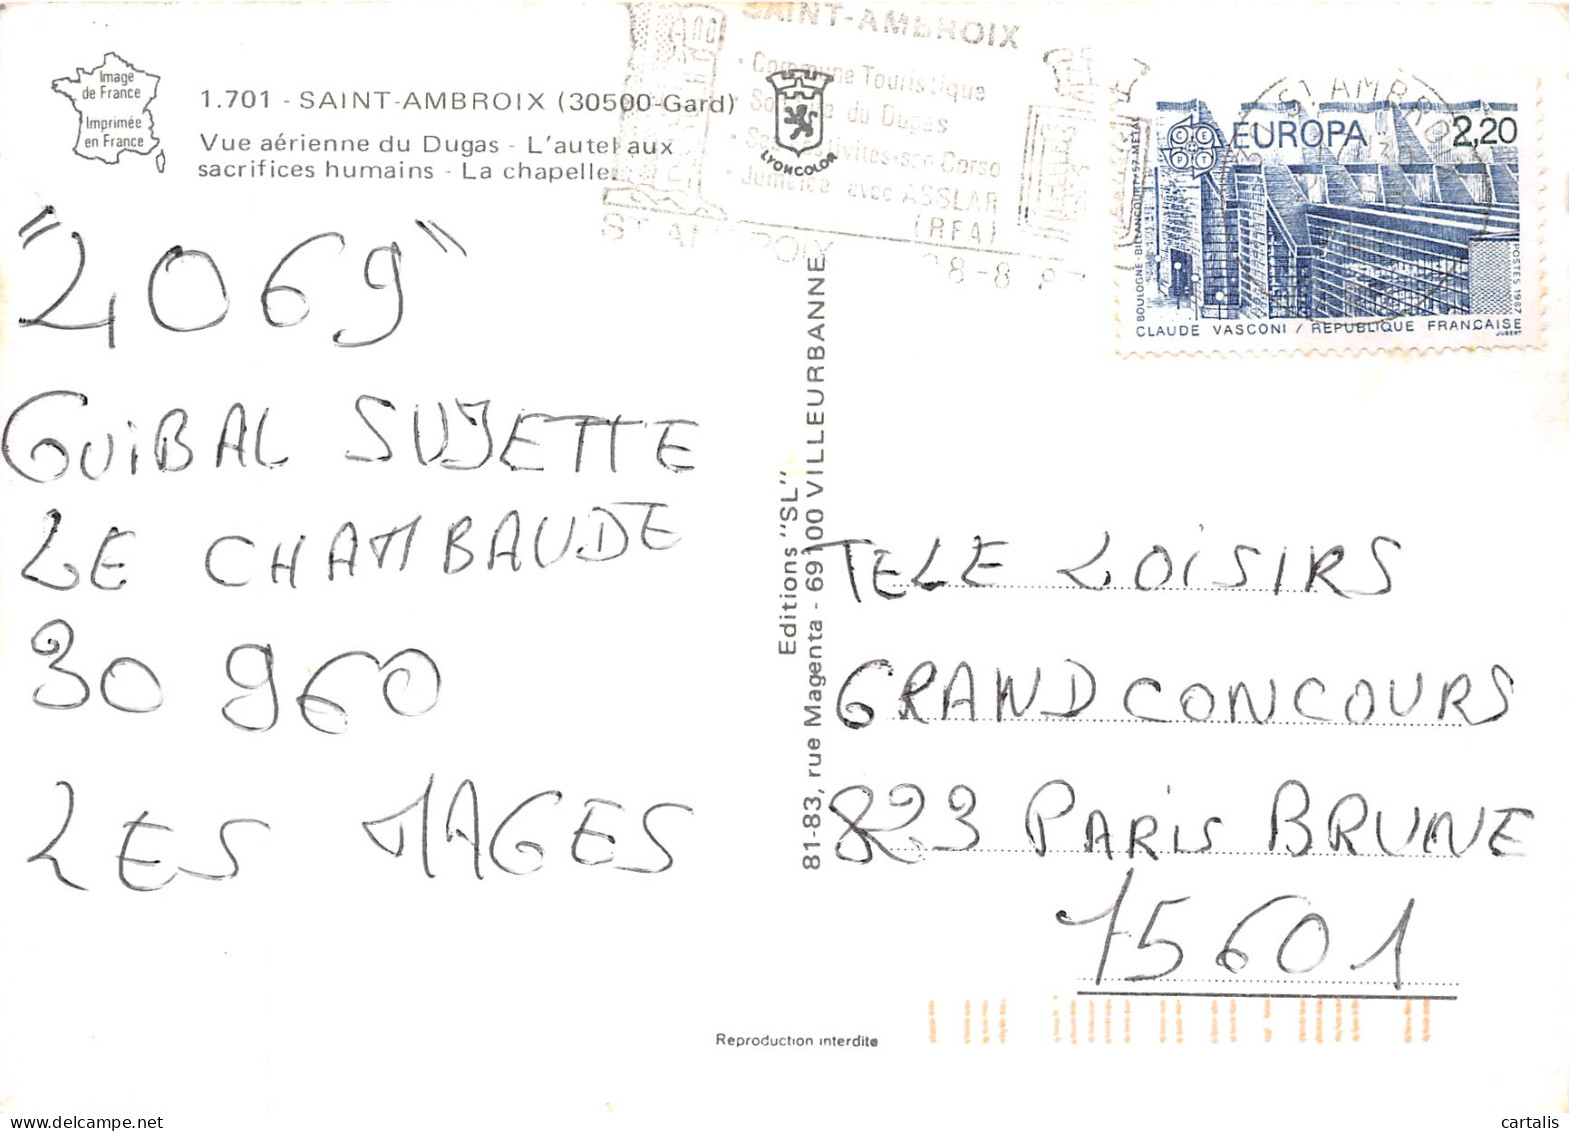 Image
de France
Imprimée
en France
1.701 - SAINT-AMBROIX (30500-Gard)
Vue aérienne du Dugas - L'autel aux
sacrifices humains - La chapelle.
SAINT-AMBROIX
• Commune Touristique
du Dugas
son Corso
• Jumelée avec ASSLAR
(RFA)
ST AMBROIX
LYONCOLOR
ST AMBROIX
CEPT EUROPA 2,20
BOULOGNE-BILLANCOURT-57 METAL
POSTES 1987
CLAUDE VASCONI / REPUBLIQUE FRANÇAISE
JUBERT
"2069"
GUIBAL SUZETTE
LE CHAMBAUDE
30 960
LES MAGES
Editions "SL"
81-83, rue Magenta - 69100 VILLEURBANNE
TELE LOISIRS
GRAND CONCOURS
823 PARIS BRUNE
75601
Reproduction interdite
cartalis